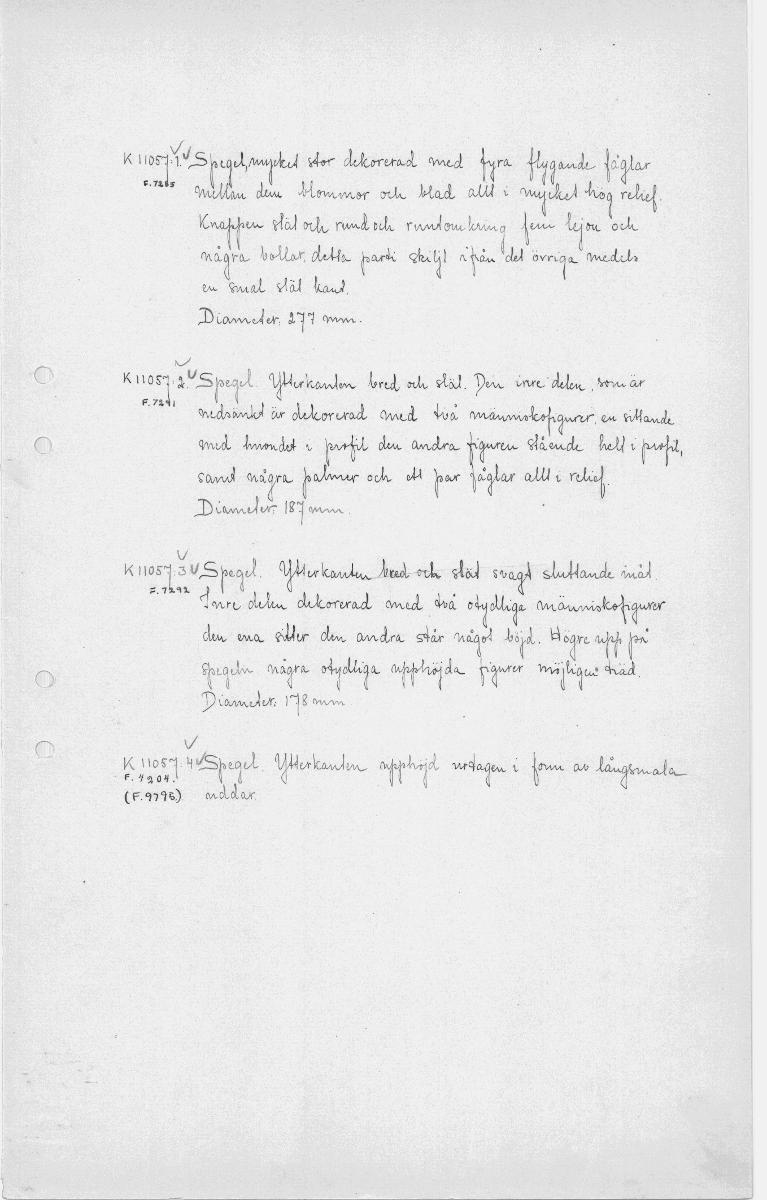 K 11057:1. Spegel, mycket stor dekorerad med fyra flygande fåglar
F.7285 mellan dem blommor och blad allt i mycket hög relief.
Knappen slät och rund och rundomkring fem lejon och
några bollar, detta parti skiljt ifrån det övriga medels
en smal slät kant.
Diameter: 277 mm.
K 11057:2. Spegel. Ytterkanten bred och slät. Den inre delen, som är
F.7291 nedsänkt är dekorerad med två människofigurer, en sittande
med huvudet i profil den andra figuren stående helt i profil,
samt några palmer och ett par fåglar allt i relief.
Diameter: 187 mm.
K 11057:3 Spegel. Ytterkanten bred och slät svagt sluttande inåt.
F.7292 Inre delen dekorerad med två otydliga människofigurer
den ena sitter den andra står något böjd. Högre upp på
spegeln några otydliga upphöjda figurer möjligen träd.
Diameter: 178 mm.
K 11057:4 Spegel. Ytterkanten upphöjd urtagen i form av långsmala
F.4204.
(F.9795) uddar.